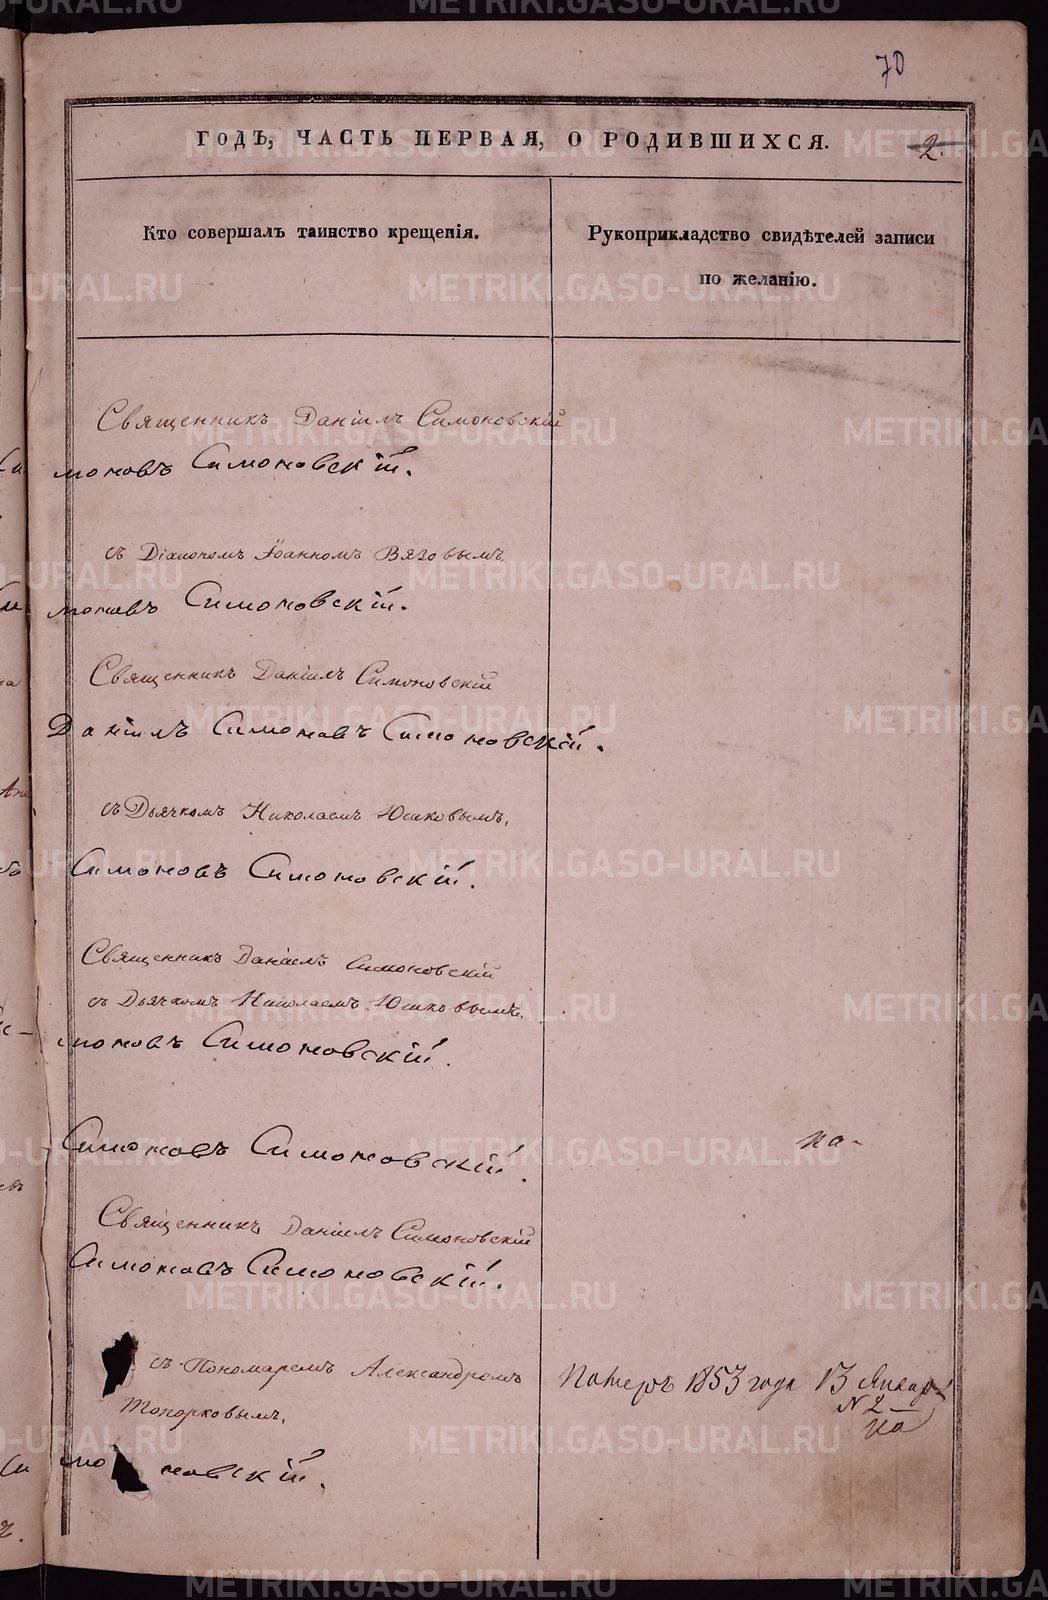 70
ГОДЪ, ЧАСТЬ ПЕРВАЯ, О РОДИВШИХСЯ.
2.
Кто совершалъ таинство крещенія.
Рукоприкладство свидѣтелей записи
по желанію.
Священникъ Даніилъ Симоновскій
моновъ Симоновскій.
съ Діакономъ Іоанномъ Вязовымъ
моновъ Симоновскій.
Священникъ Даніилъ Симоновскій
Даніилъ Симоновъ Симоновскій.
съ Дьячкомъ Николаемъ Юшковымъ.
Симоновъ Симоновскій.
Священникъ Даніилъ Симоновскій
съ Дьячкомъ Николаемъ Юшковымъ.
моновъ Симоновскій.
Симоновъ Симоновскій.
Священникъ Даніилъ Симоновскій
Симоновъ Симоновскій.
съ Пономаремъ Александромъ
Топорковымъ.
1853 года 13 Январ
N 2
мо новскій.
METRIKI.GASO-URAL.RU